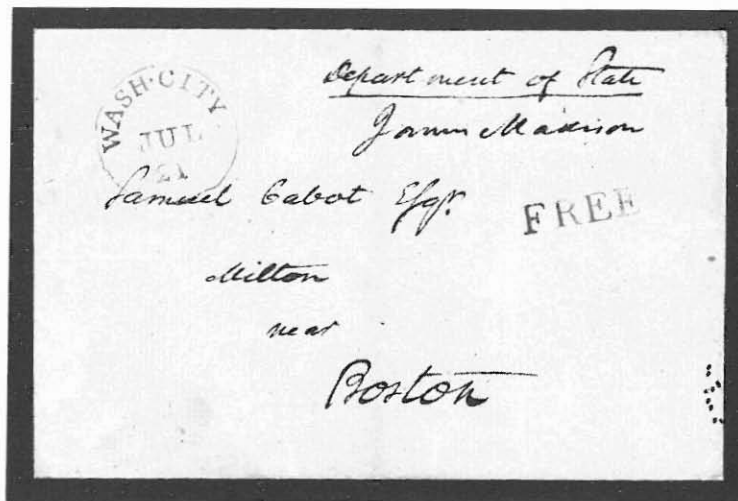 WASH·CITY
JUL
21
Department of State
James Madison
Samuel Cabot Esqr.
FREE
Milton
near
Boston